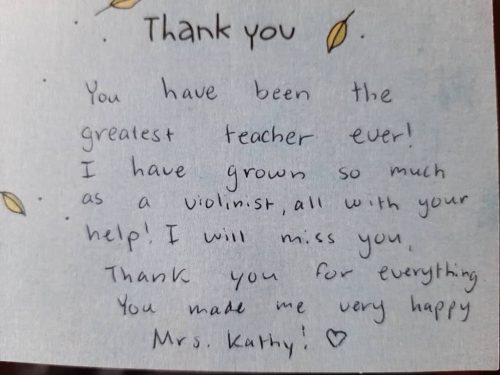 Thank you
You have been the
greatest teacher ever!
I have grown so much
as a violinist, all with your
help! I will miss you,
Thank you for everything
You made me very happy
Mrs. Kathy! ♡